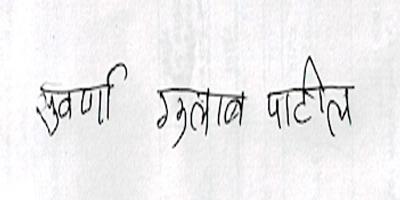 सुवर्णा गुलाब पाटील